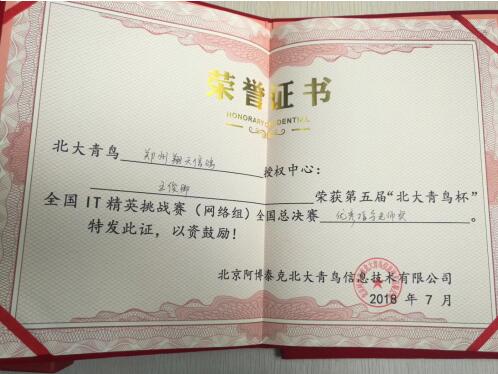 荣誉证书
HONORARY CREDENTIAL
北大青鸟 郑州翔天信鸽 授权中心:
王俊卿 荣获第五届“北大青鸟杯”
全国IT精英挑战赛(网络组)全国总决赛 优秀指导老师奖
特发此证,以资鼓励!
北京阿博泰克北大青鸟信息技术有限公司
2018 年 7 月